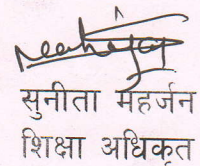 सुनीता महर्जन
शिक्षा अधिकृत